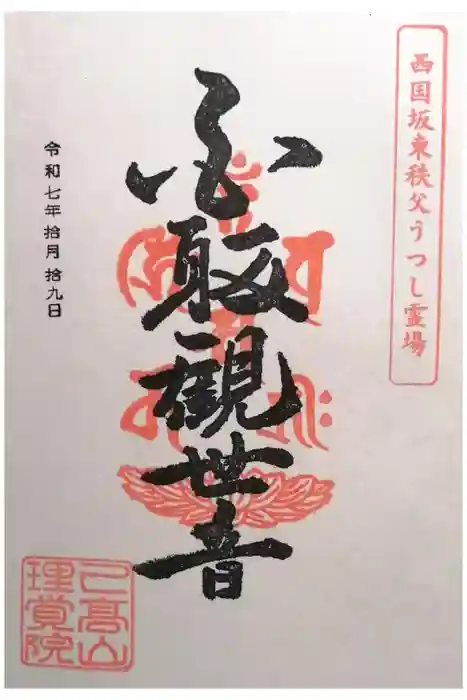 西国坂東秩父うつし霊場
觀世音
令和七年拾月拾九日
己高山
理覚院